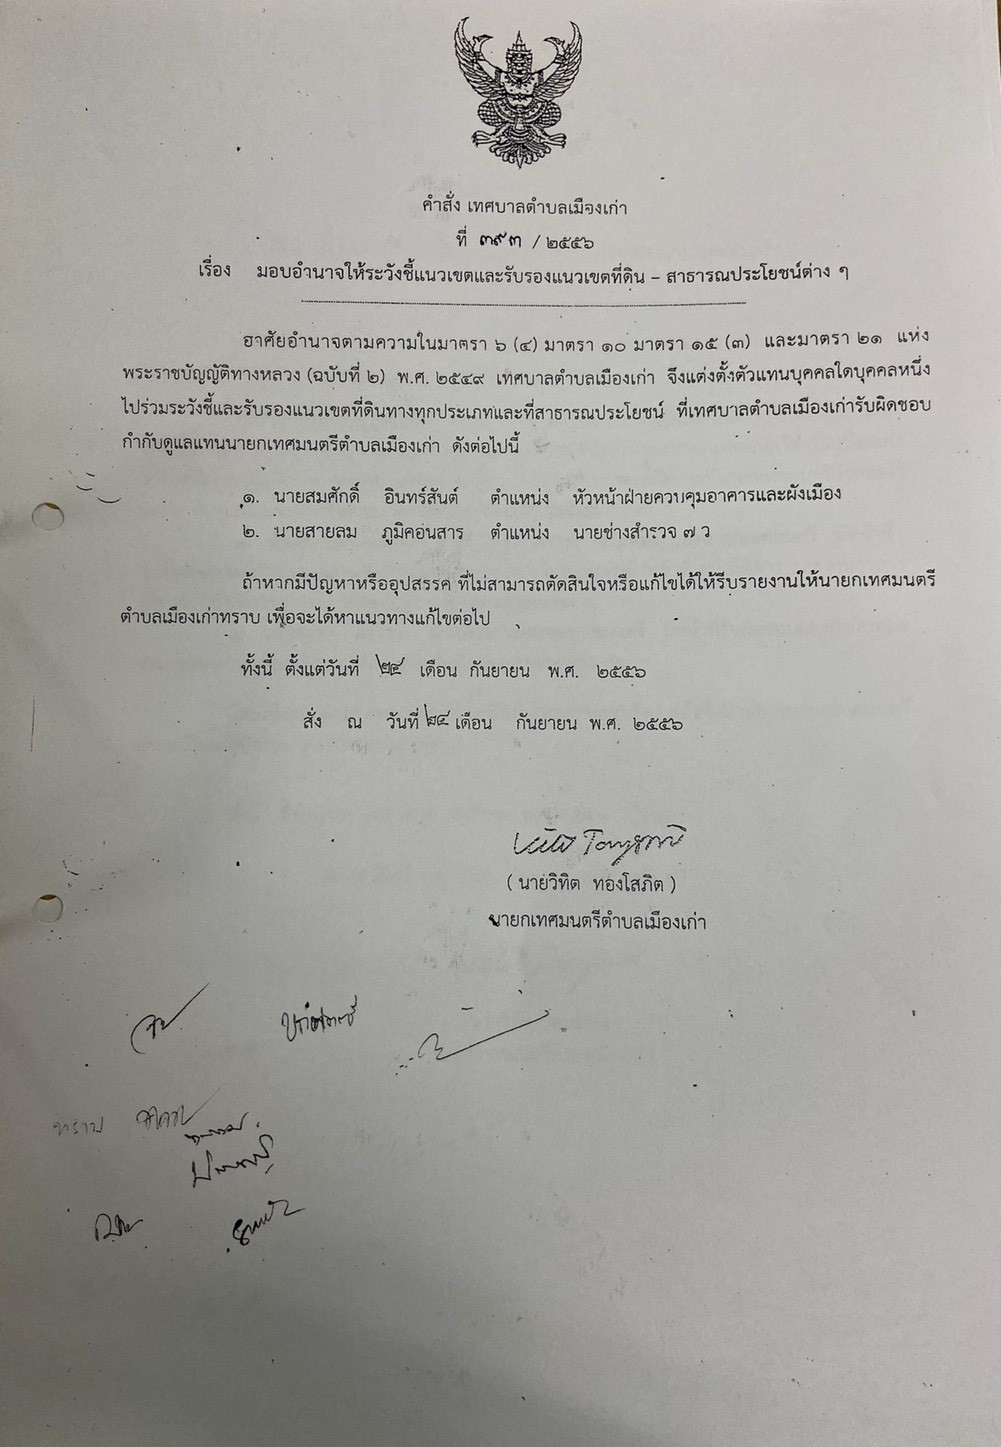 คำสั่ง เทศบาลตำบลเมืองเก่า
ที่ ๓๙๓ / ๒๕๕๖
เรื่อง มอบอำนาจให้ระวังชี้แนวเขตและรับรองแนวเขตที่ดิน – สาธารณประโยชน์ต่าง ๆ
อาศัยอำนาจตามความในมาตรา ๖ (๔) มาตรา ๑๐ มาตรา ๑๕ (๓) และมาตรา ๒๑ แห่ง
พระราชบัญญัติทางหลวง (ฉบับที่ ๒) พ.ศ. ๒๕๔๙ เทศบาลตำบลเมืองเก่า จึงแต่งตั้งตัวแทนบุคคลใดบุคคลหนึ่ง
ไปร่วมระวังชี้และรับรองแนวเขตที่ดินทางทุกประเภทและที่สาธารณประโยชน์ ที่เทศบาลตำบลเมืองเก่ารับผิดชอบ
กำกับดูแลแทนนายกเทศมนตรีตำบลเมืองเก่า ดังต่อไปนี้
๑. นายสมศักดิ์ อินทร์สันต์ ตำแหน่ง หัวหน้าฝ่ายควบคุมอาคารและผังเมือง
๒. นายสายลม ภูมิคอนสาร ตำแหน่ง นายช่างสำรวจ ๗ ว
ถ้าหากมีปัญหาหรืออุปสรรค ที่ไม่สามารถตัดสินใจหรือแก้ไขได้ให้รีบรายงานให้นายกเทศมนตรี
ตำบลเมืองเก่าทราบ เพื่อจะได้หาแนวทางแก้ไขต่อไป
ทั้งนี้ ตั้งแต่วันที่ ๒๔ เดือน กันยายน พ.ศ. ๒๕๕๖
สั่ง ณ วันที่ ๒๔ เดือน กันยายน พ.ศ. ๒๕๕๖
( นายวิทิต ทองโสภิต )
นายกเทศมนตรีตำบลเมืองเก่า
ทราบ